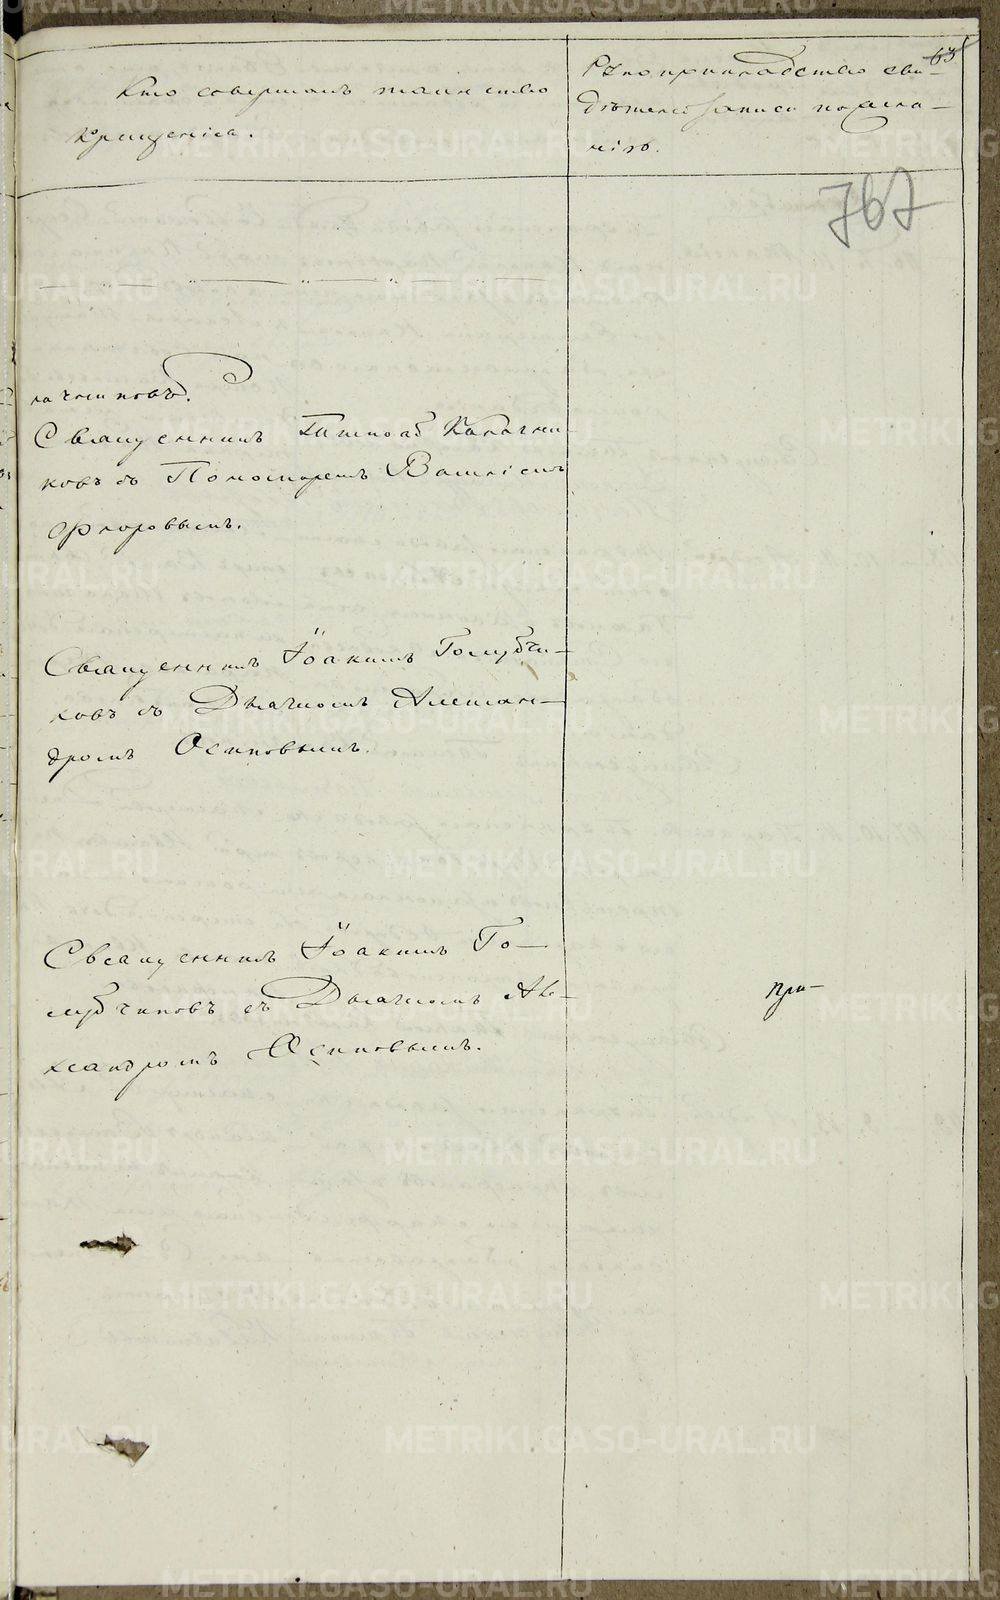 63
Кто совершалъ таинство
крещенія.
Рукоприкладство сви-
дѣтелей записи по жела-
нію.
767
Священникъ Калачни-
ковъ съ Пономаремъ Василіемъ
Флоровымъ.
Священникъ Іоакимъ Голубчи-
ковъ съ Дьячкомъ Алексан-
дромъ Осиповымъ.
Священникъ Іоакимъ Го-
лубчиковъ съ Дьячкомъ Але-
ксандромъ Осиповымъ.
при-
METRIKI.GASO-URAL.RU